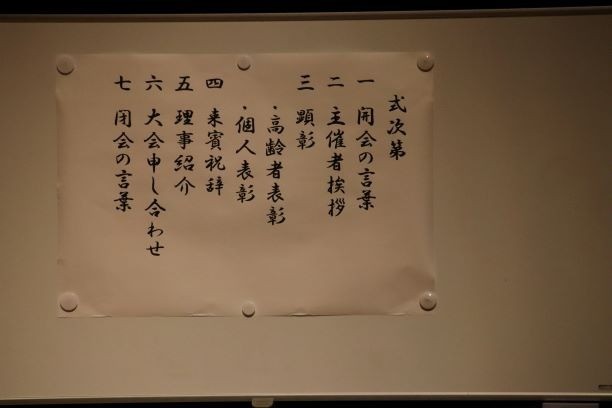 式次第
一 開会の言葉
二 主催者挨拶
三 顕彰
・高齢者表彰
・個人表彰
四 来賓祝辞
五 理事紹介
六 大会申し合わせ
七 閉会の言葉